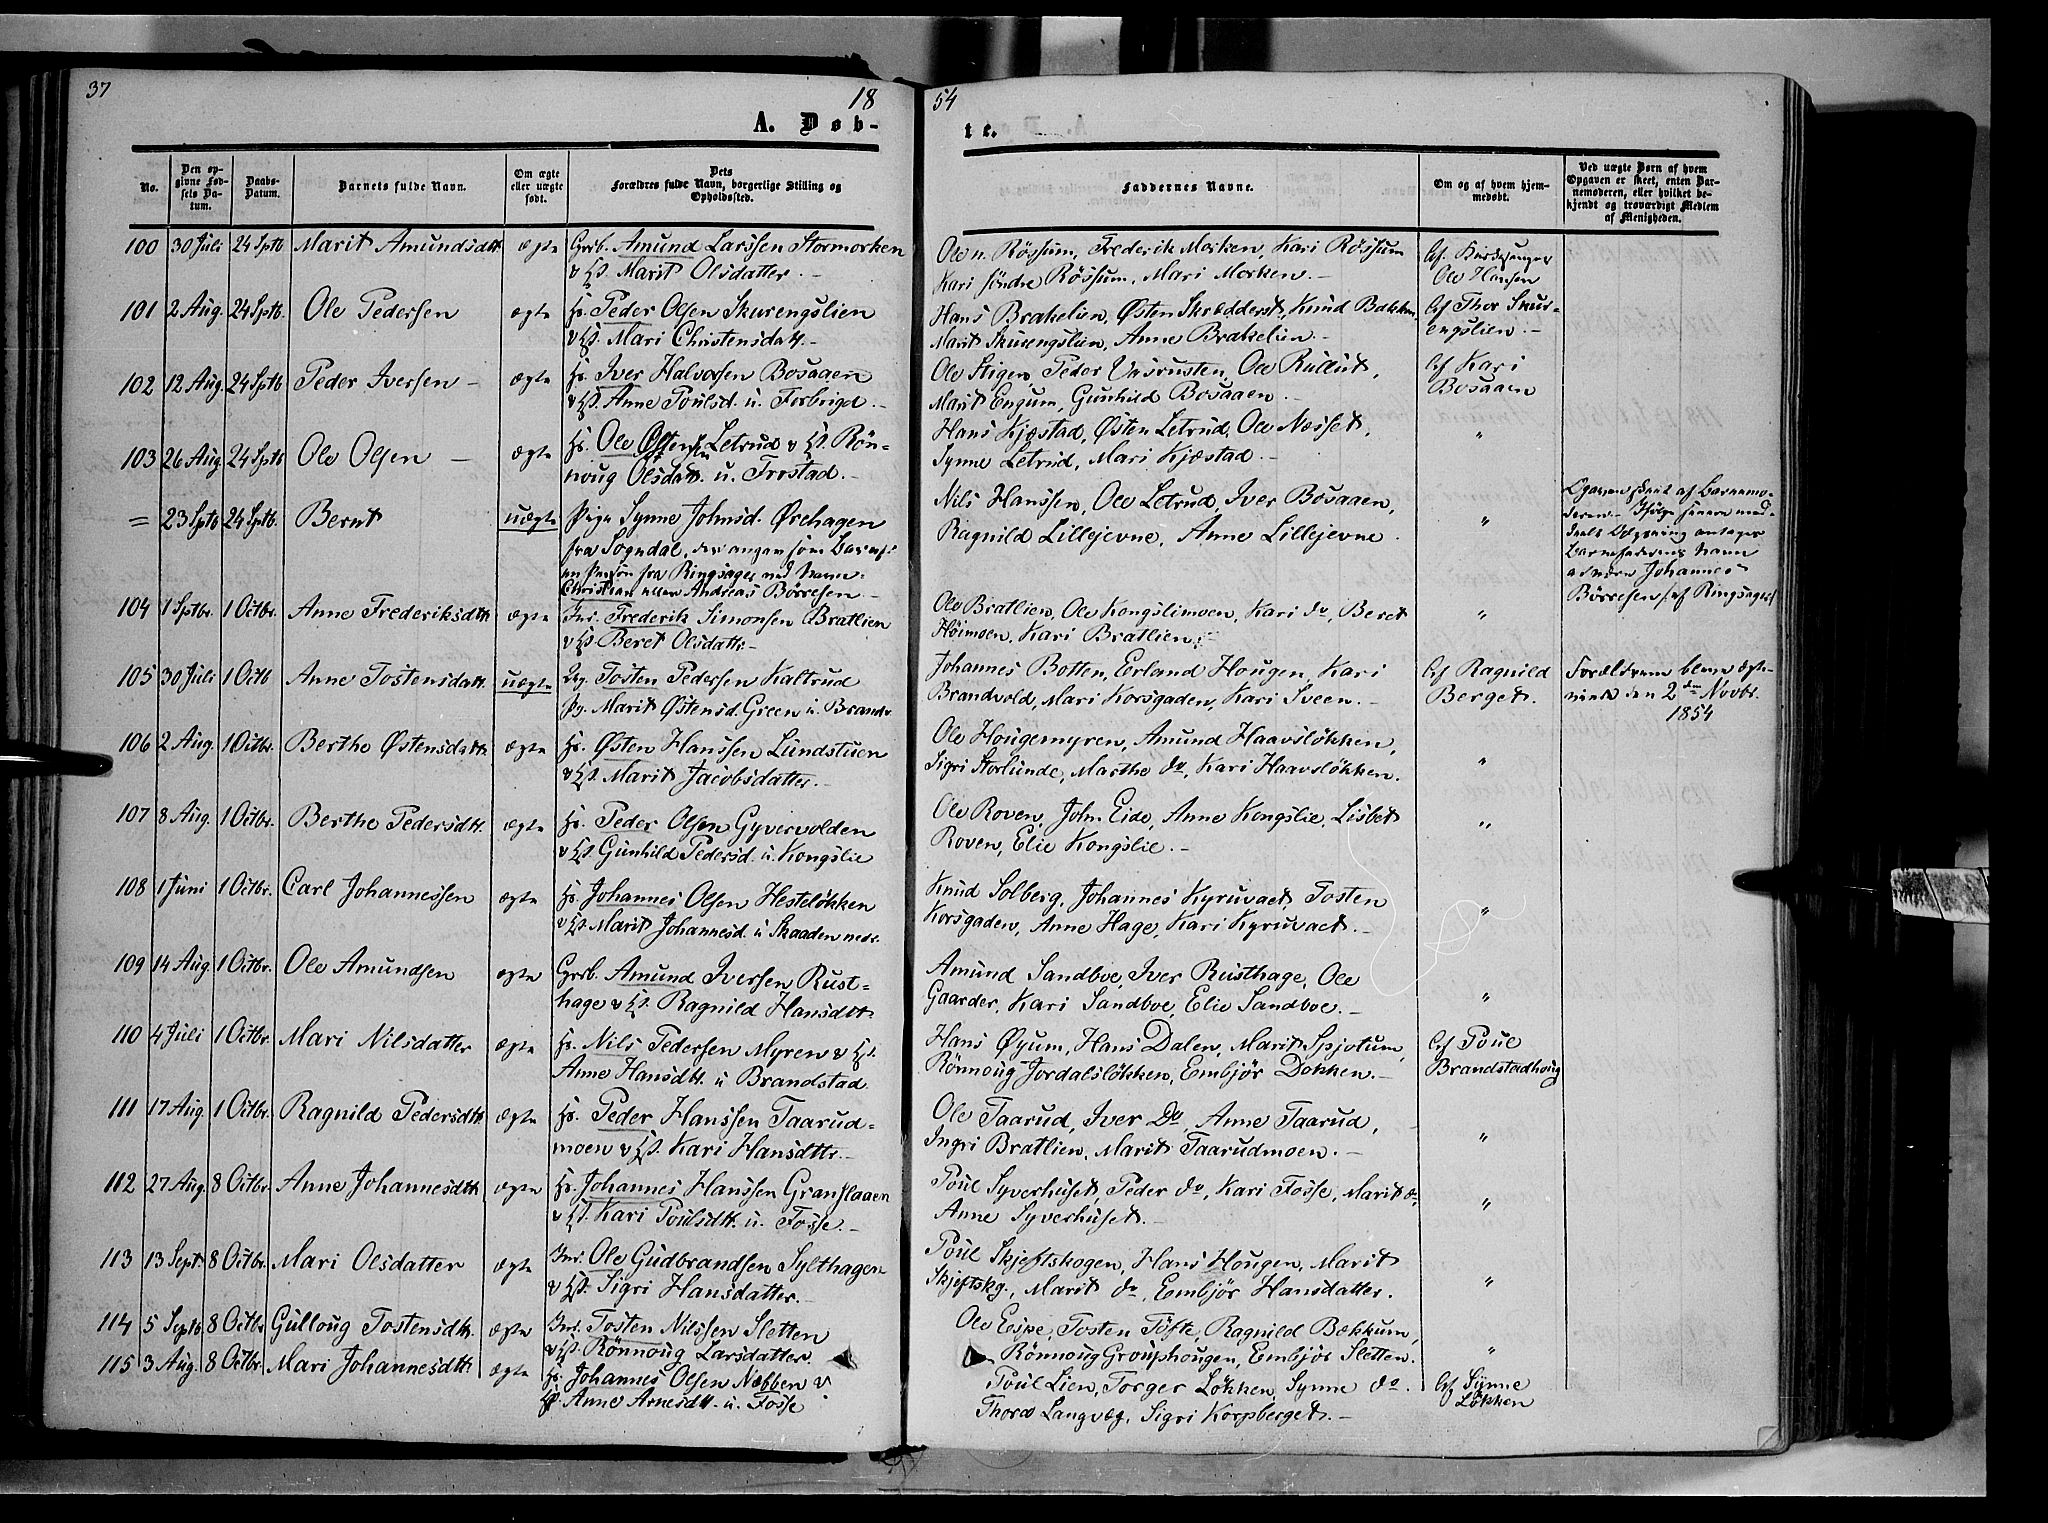 37
18
54
A. Døb-
te.
No.
Den op-
givne Fød-
sels Da-
tum.
Daabs-
Datum.
Barnets fulde Navn.
Om ægte
eller uægte
født.
Dets
Forældres fulde Navn, borgerlige Stilling og
Opholdssted.
Faddernes Navne.
Om og af hvem hjem-
medøbt.
Ved uægte Børn af hvem
Opgaven er skeet, enten Bar-
nemoderen, eller hvilket be-
kjendt og troværdigt Medlem
af Menigheden.
100 30 Juli 24 Sptb Marit Amundsdtt. ægte Grb. Amund Larssen Stormorken
v Hst. Marit Olsdatter. -
Ole n. Røssum, Frederik Morken, Kari Røssum
Kari søndre Røssum, Mari Morken. -
af Kirkesanger
Ole Hansen
101 2 Aug. 24 Sptb. Ole Pedersen ægte Hs. Peder Olsen Skurengslien
v Hst. Mari Christensdatt. -
Hans Brakelien, Østen Skrædderst, Knud Bakken,
Marit Skurengslien, Anne Brakelien. -
af Thor Skur-
engslien. -
102 12 Aug. 24 Sptb Peder Iversen - ægte Hs. Iver Halvorsen Bosaaen
v Hst. Anne Poulsd. u. Forbrigd. -
Ole Stigen, Peder Vasrusten, Ole Rullut,
Marit Engum, Gunhild Bosaaen. -
af Kari
Bosaaen
103 26 Aug. 24 Sptb Ole Olsen - ægte Hs. Ole Østensen Letrud v Hst. Røn-
noug Olsdatt. u. Frostad. -
Hans Kjæstad, Østen Letrud, Ole Næsset,
Synne Letrud, Mari Kjæstad. -
"
= 23 Sptb 24 Sptb. Bernt uægte Pige Synne Johnsd. Ørehagen
fra Sogndal, der angav som Barnef.
en Person fra Ringsager med Navn
Christian eller Andreas Børresen. -
Nils Hanssen, Ole Letrud, Iver Bosaaen,
Ragnild Lillejevne, Anne Lillejevne
"
Opgaven skeet af Barnemo-
deren. -
Barnefaderens Navn
at være Johannes
Børresen af Ringsager
104 1 Sptbr. 1 Octbr. Anne Frederiksdtt. ægte Inr. Frederik Simonsen Bratlien
v Hst. Beret Olsdattr. -
Ole Bratlien, Ole Kongslimoen, Kari do, Beret
Høimoen, Kari Bratlien. -
"
105 30 Juli 1 Octb Anne Tostensdatt. uægte Ug. Tosten Pedersen Kaltrud
Pg. Marit Østensd. Green u. Brandv.
Johannes Botten, Erland Hougen, Kari
Brandvold, Mari Korsgaden, Kari Sveen. -
af Ragnild
Berget.
Forældrene bleve ægte-
viede den 2den Novbr.
1854
106 2 Aug. 1 Octbr. Berthe Østensdatt. ægte Hs. Østen Hanssen Lundstuen
v Hst. Marit Jacobsdatter. -
Ole Hougemyren, Amund Haavsløkken,
Sigri Storlunde, Marthe do, Kari Haavsløkken.
"
107 8 Aug. 1 Octbr. Berthe Pedersdtt. ægte Hs. Peder Olsen Gyvervolden
v Hst. Gunhild Pedersd. u. Kongslie
Ole Roven, John Eide, Anne Kongslie, Lisbet
Roven, Elie Kongslie. -
"
108 1 Juni 1 Octbr. Carl Johannessen ægte Hs. Johannes Olsen Hesteløkken
v Hst. Marit Johannesd. u Skaaden nedr.
Knud Solberg, Johannes Kyruvaet, Tosten
Korsgaden, Anne Hage, Kari Kyruvaet. -
"
109 14 Aug. 1 Octbr. Ole Amundsen ægte Grb. Amund Iversen Rust-
hage v Hst. Ragnild Hansdtt.
Amund Sandboe, Iver Rusthage, Ole
Gaarder, Kari Sandboe, Elie Sandboe. -
"
110 4 Juli 1 Octbr. Mari Nilsdatter ægte Hs. Nils Pedersen Myren v Hst.
Anne Hansdtt. u Brandstad
Hans Øyum, Hans Dalen, Marit Spjotum,
Rønnoug Jordalsløkken, Embjør Dokken. -
af Poul
Brandstadhoug
111 17 Aug. 1 Octbr. Ragnild Pedersdtt. ægte Hs. Peder Hanssen Taarud-
moen v Hst. Kari Hansdttr. -
Ole Taarud, Iver Do, Anne Taarud,
Ingri Bratlien, Marit Taarudmoen. -
"
112 27 Aug. 8 Octbr. Anne Johannesdtt. ægte Hs. Johannes Hanssen Granslaaen
v Hst. Kari Poulsdtt. u. Fosse. -
Poul Syverhuset, Peder do, Kari Fosse, Marit do,
Anne Syverhuset. -
"
113 13 Sept. 8 Octbr. Mari Olsdatter ægte Inr. Ole Gudbrandsen Sylthagen
v Hst. Sigri Hansdatter. -
Poul Skjeftskogen, Hans Hougen, Marit
Skjeftskg., Marit do, Embjør Hansdatter.
"
114 5 Septb 8 Octbr Gulloug Tostensdtt. ægte Inr. Tosten Nilssen Sletten
v Hst. Rønnoug Larsdatter.
Ole Espe, Tosten Tofte, Ragnild Bækkum,
Rønnoug Grouphougen, Embjør Sletten.
"
115 3 Aug. 8 Octbr. Mari Johannesdtt. ægte Hs. Johannes Olsen Næbben v
Hst. Anne Arnesdtt. u. Fosse
Poul Lien, Torger Løkken, Synne do.
Thora Langvæg, Sigri Korpberget. -
af Synne
Løkken